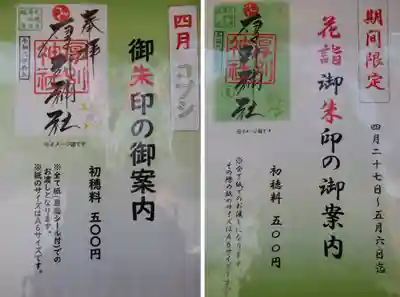 四月 コブシ
御朱印の御案内
初穂料 五〇〇円
※全て紙(裏面シール付)での
お渡しとなります。
※紙のサイズはA6サイズです。
奉拝
厚別神社
※イメージ図です
期間限定
花詣御朱印の御案内
四月二十七日~五月六日迄
初穂料 五〇〇円
※全て紙でのお渡しとなります。
厚別神社
※イメージ図です